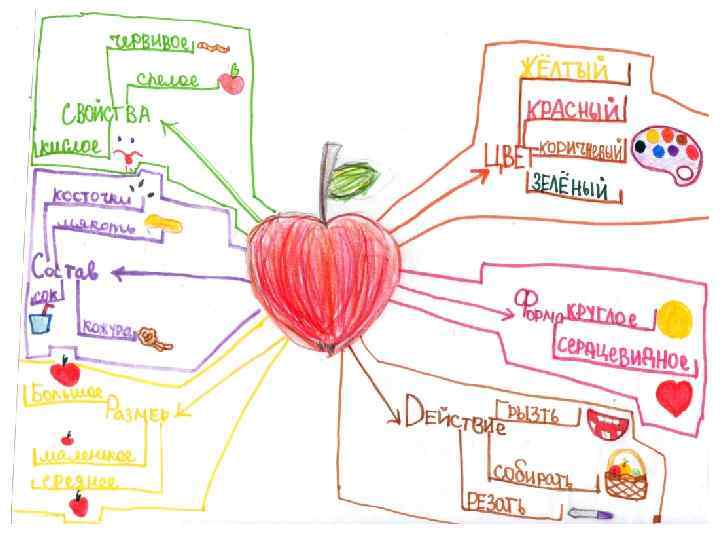 червивое
спелое
СВОЙСТВА
кислое
косточки
мякоть
Состав
сок
кожура
Большое
РАЗМЕР
маленькое
среднее
ЖЁЛТЫЙ
КРАСНЫЙ
ЦВЕТ
коричневый
ЗЕЛЁНЫЙ
Форма
КРУГЛОЕ
СЕРДЦЕВИДНОЕ
ДЕЙСТВИЕ
ГРЫЗТЬ
собирать
РЕЗАТЬ